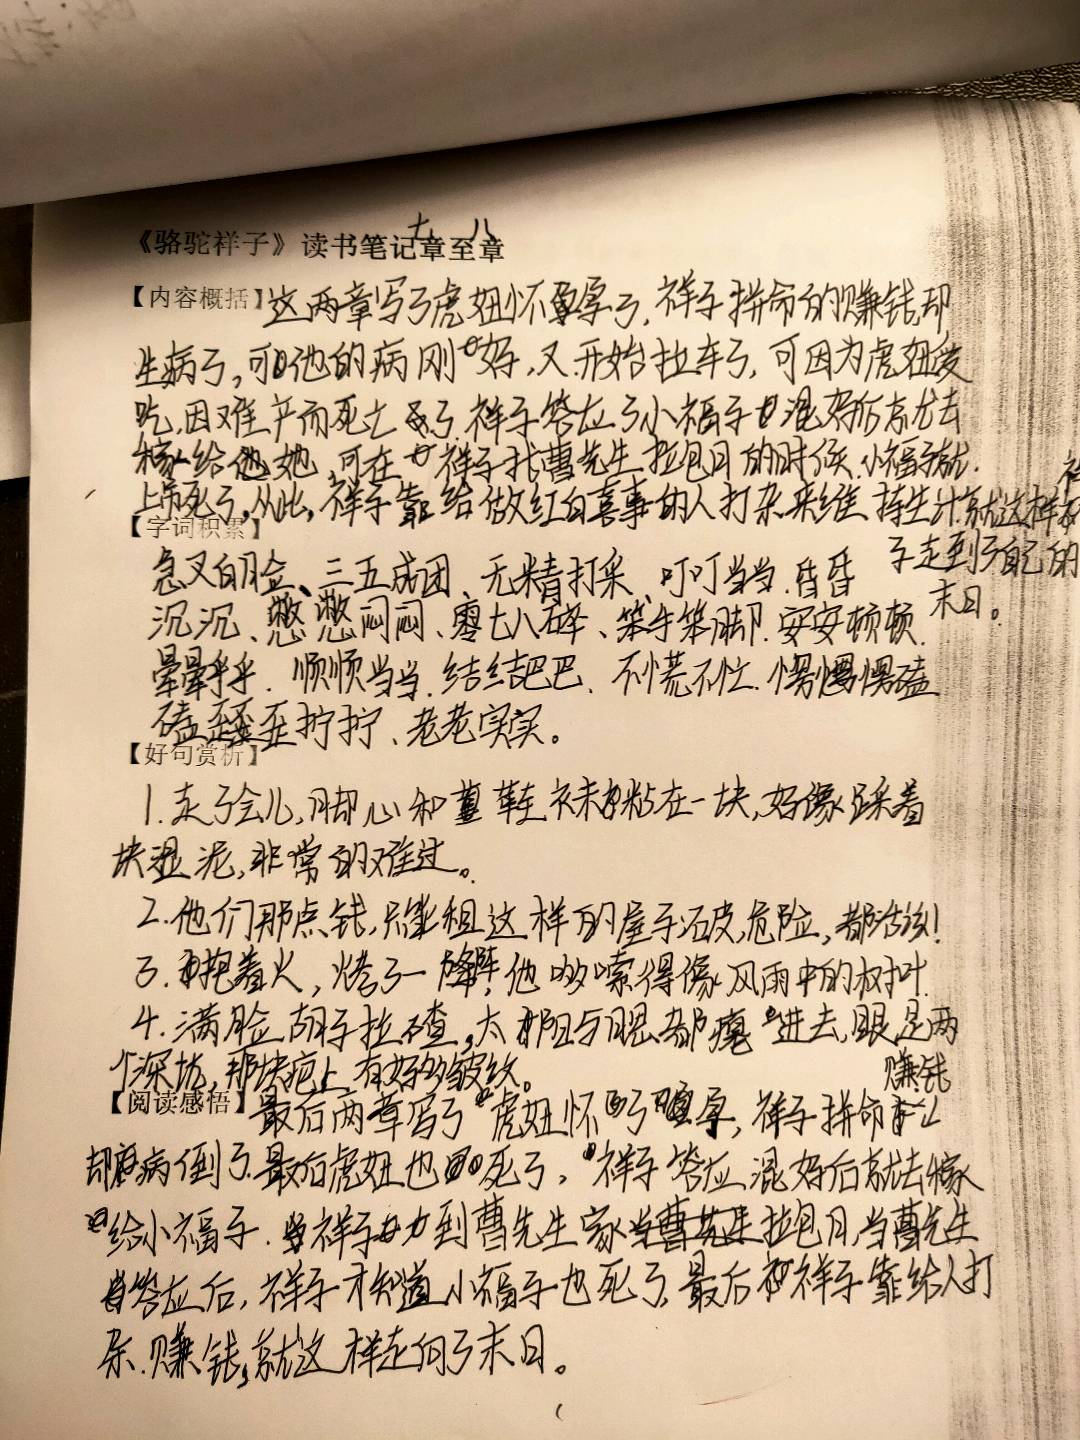 七 八
《骆驼祥子》读书笔记章至章
【内容概括】这两章写了虎妞怀孕了,祥子拼命的赚钱却
生病了,可他的病刚好,又开始拉车了,可因为虎妞
吃,因难产而死亡了祥子答应了小福子混好后就去
嫁给她,可在祥子找曹先生拉包月的时候、小福子就
上吊死了,从此,祥子靠给做红白喜事的人打杂来维持生计.就这样祥
子走到了自己的
末日。
【字词积累】
急叉白脸、三五成团、无精打采、叮叮当当.昏昏
沉沉、憋憋闷闷、零七八碎、笨手笨脚.安安顿顿.
晕晕乎乎.顺顺当当.结结巴巴、不慌不忙.愣愣磕
磕歪歪拧拧、老老实实。
【好句赏析】
1.走了会儿,脚心和鞋袜粘在一块,好像踩着
块湿泥,非常的难过。
2.他们那点钱,只能租这样的屋子;破,危险,都活该!
3.抱着火,烤了一阵,他哆嗦得像风雨中的树叶.
4.满脸胡子拉碴,太阳与腮都瘪进去,眼是两
个深坑,那块疤上有好多皱纹。
【阅读感悟】最后两章写了虎妞怀了孕,祥子拼命
赚钱
却病倒了.最后虎妞也死了,祥子答应混好后就去嫁
给小福子.祥子到曹先生家拉包月,当曹先生
答应后,祥子才知道小福子也死了.最后祥子靠给人打
杂.赚钱,就这样走向了末日。